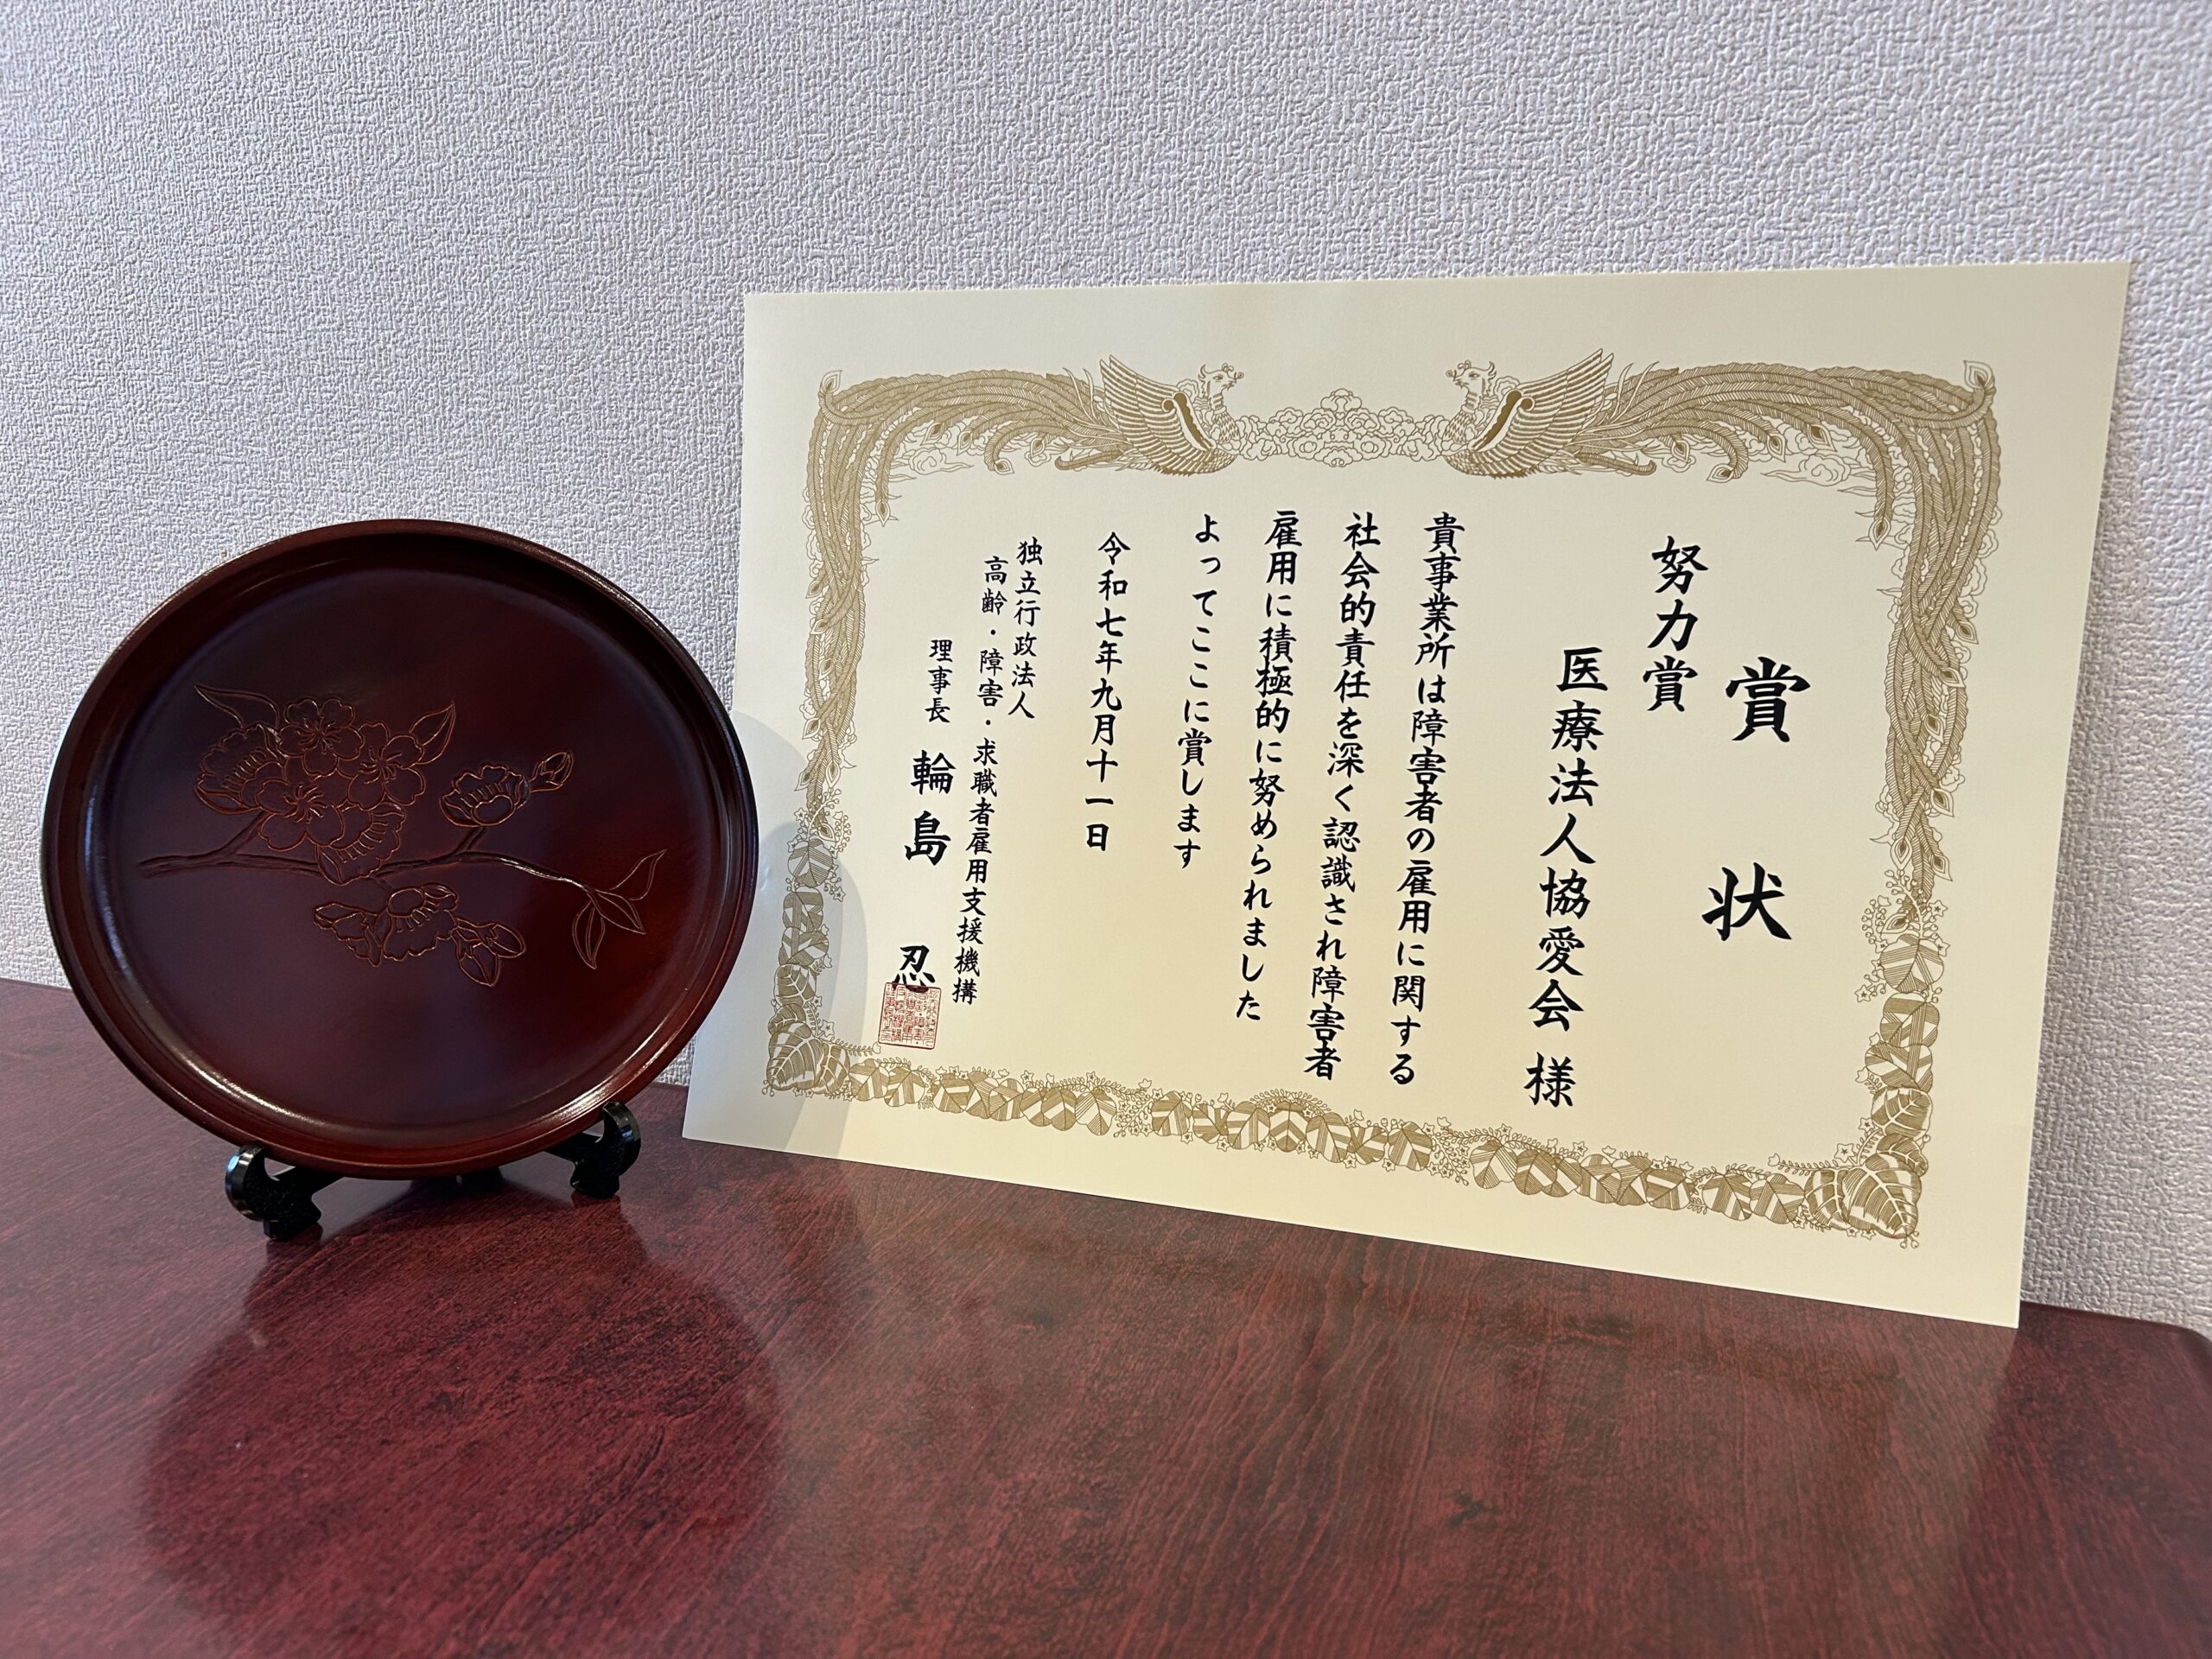 賞状
努力賞
医療法人協愛会 様
貴事業所は障害者の雇用に関する
社会的責任を深く認識され障害者
雇用に積極的に努められました
よってここに賞します
令和七年九月十一日
独立行政法人
高齢・障害・求職者雇用支援機構
理事長 輪島 忍